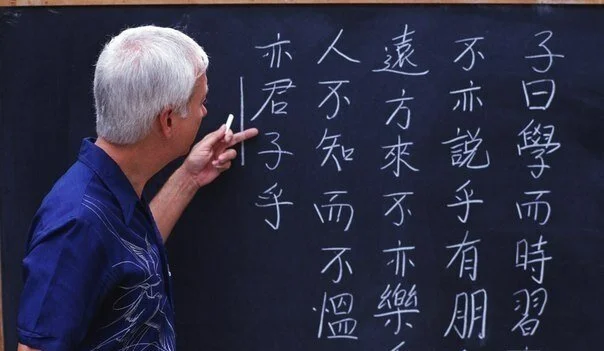 子曰學而時習
不亦說乎有朋
遠方來不亦樂
人不知而不慍
亦君子乎